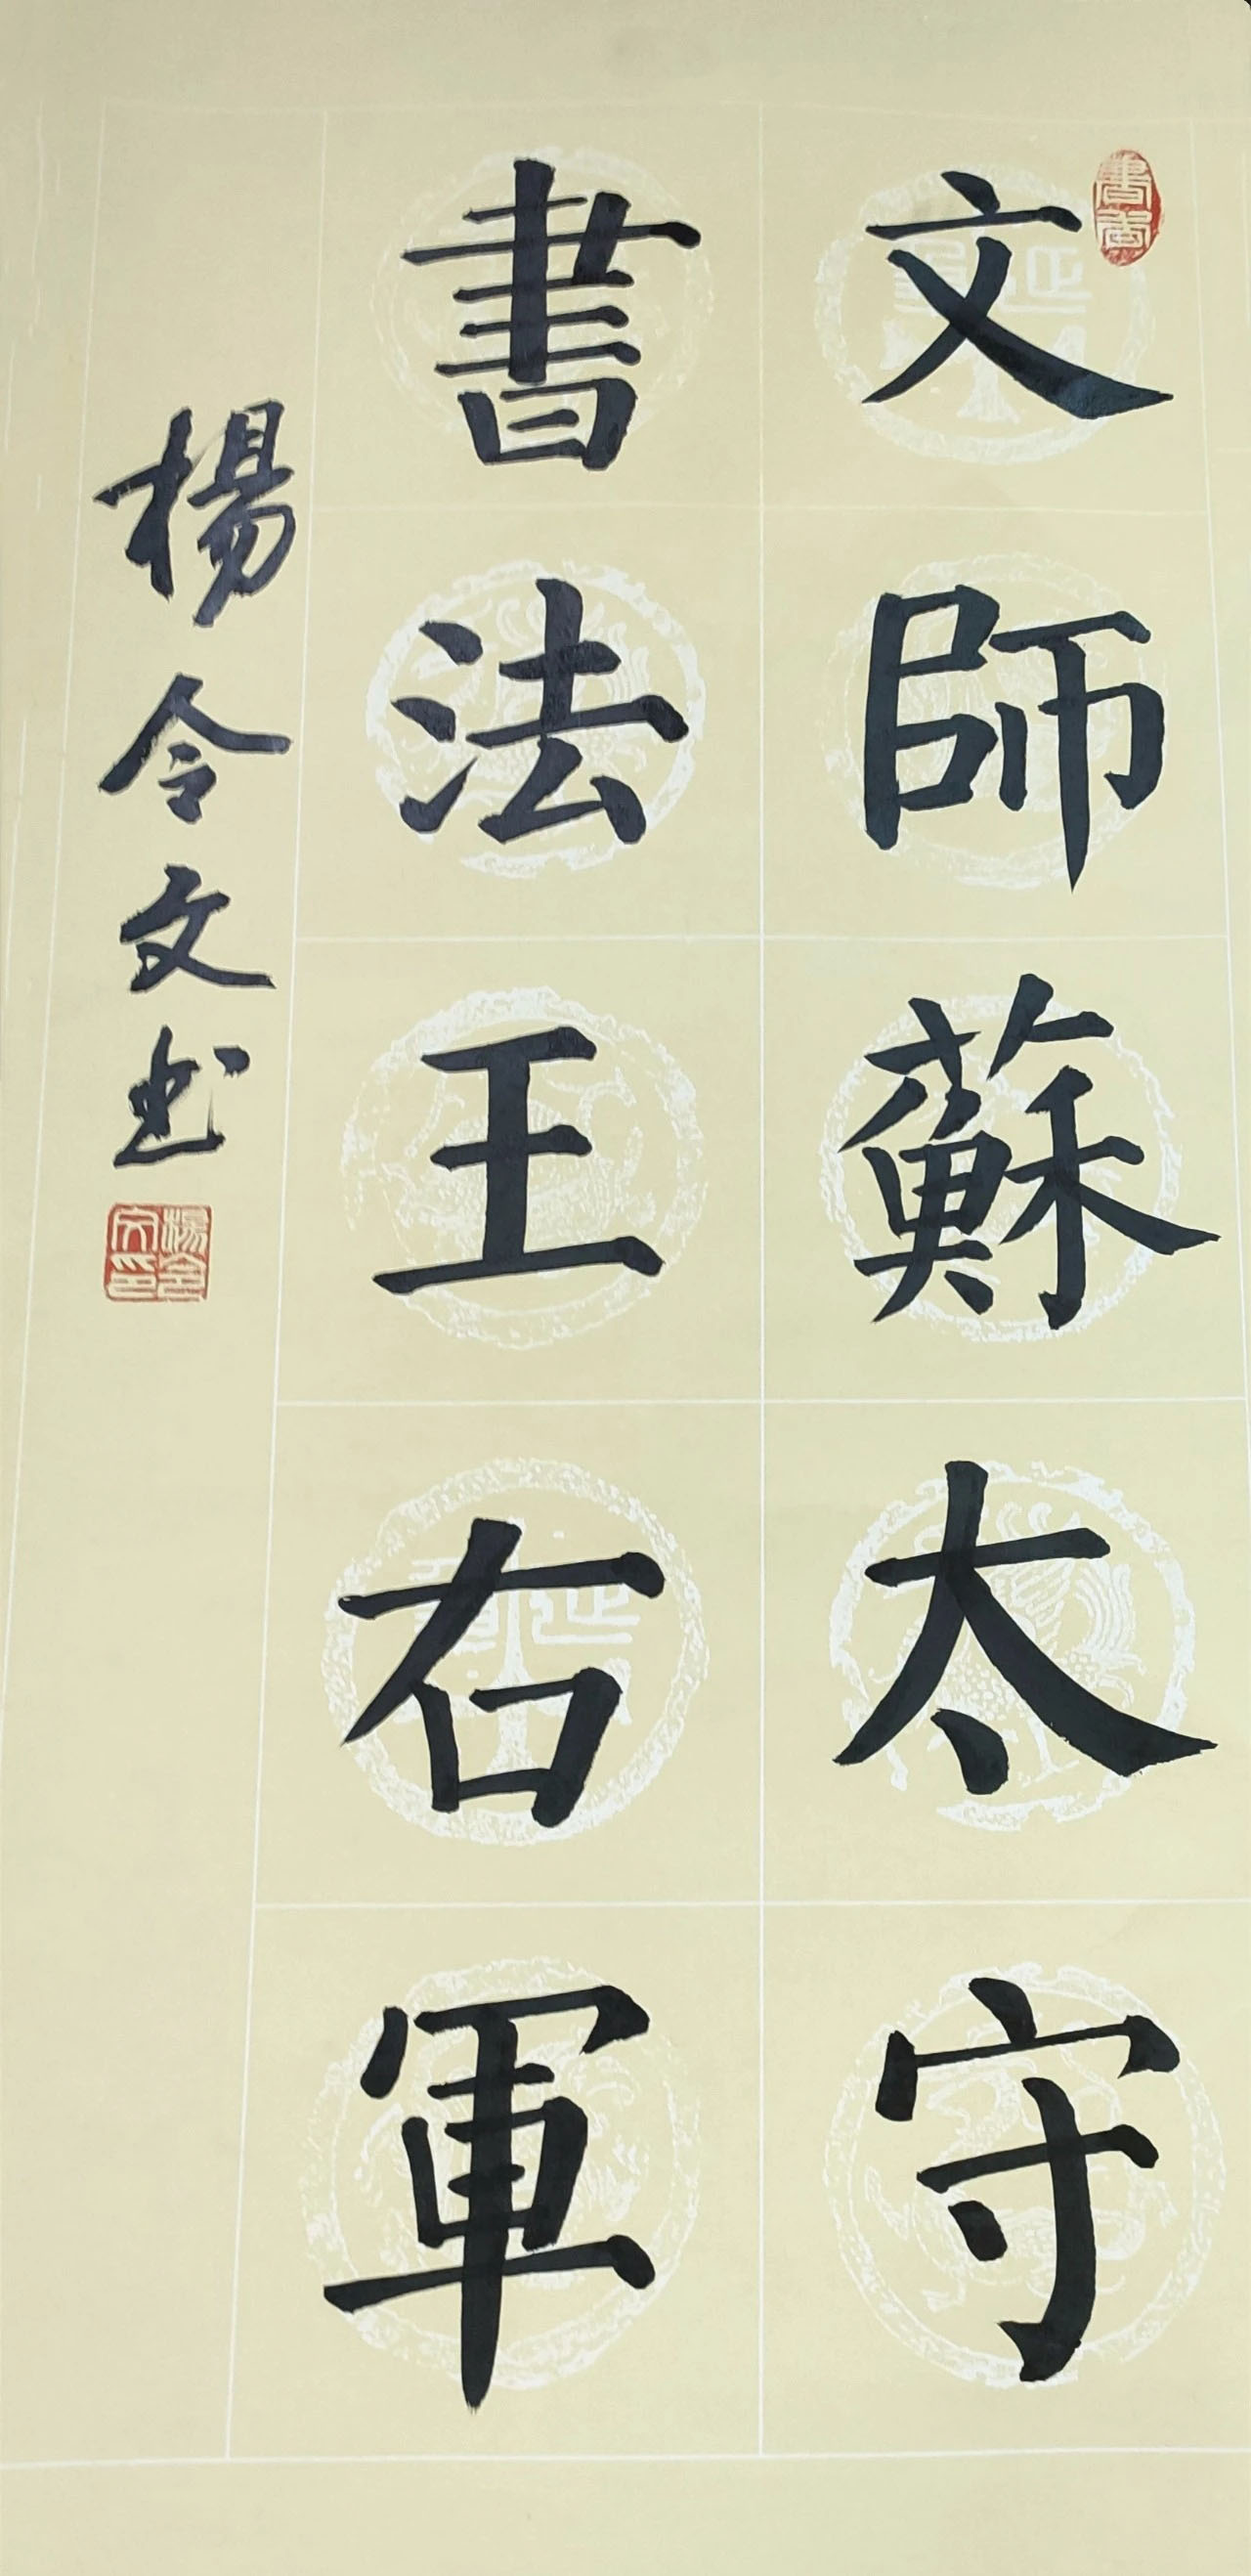 文師蘇太守
書法王右軍
楊令文书
書香
楊令文印